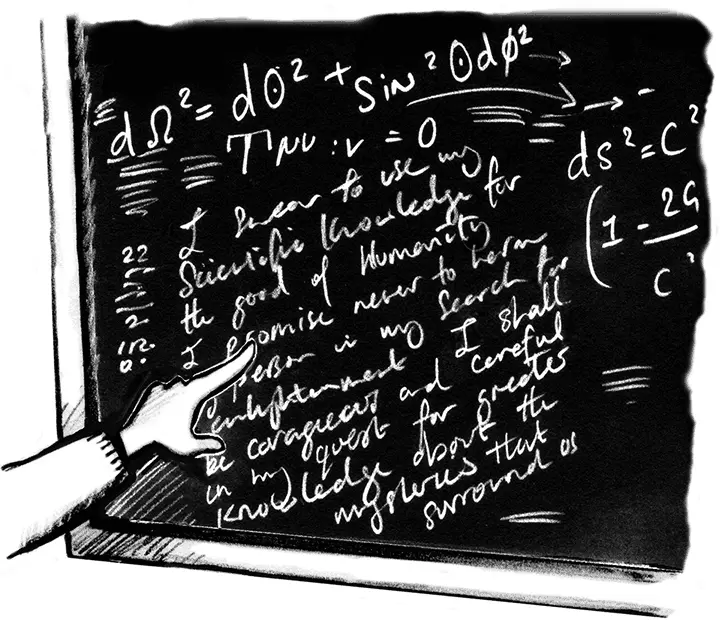 dΩ² = dθ² + sin²θdφ² →
Tμν ; ν = 0
→ -
ds² = C²
(1 - 2G
C²
22
2
I swear to use my
Scientific Knowledge for
the good of Humanity
I promise never to harm
person in my search for
enlightenment I shall
be corageous and careful
in my quest for greater
Knowledge about the
mysteries that
surround us